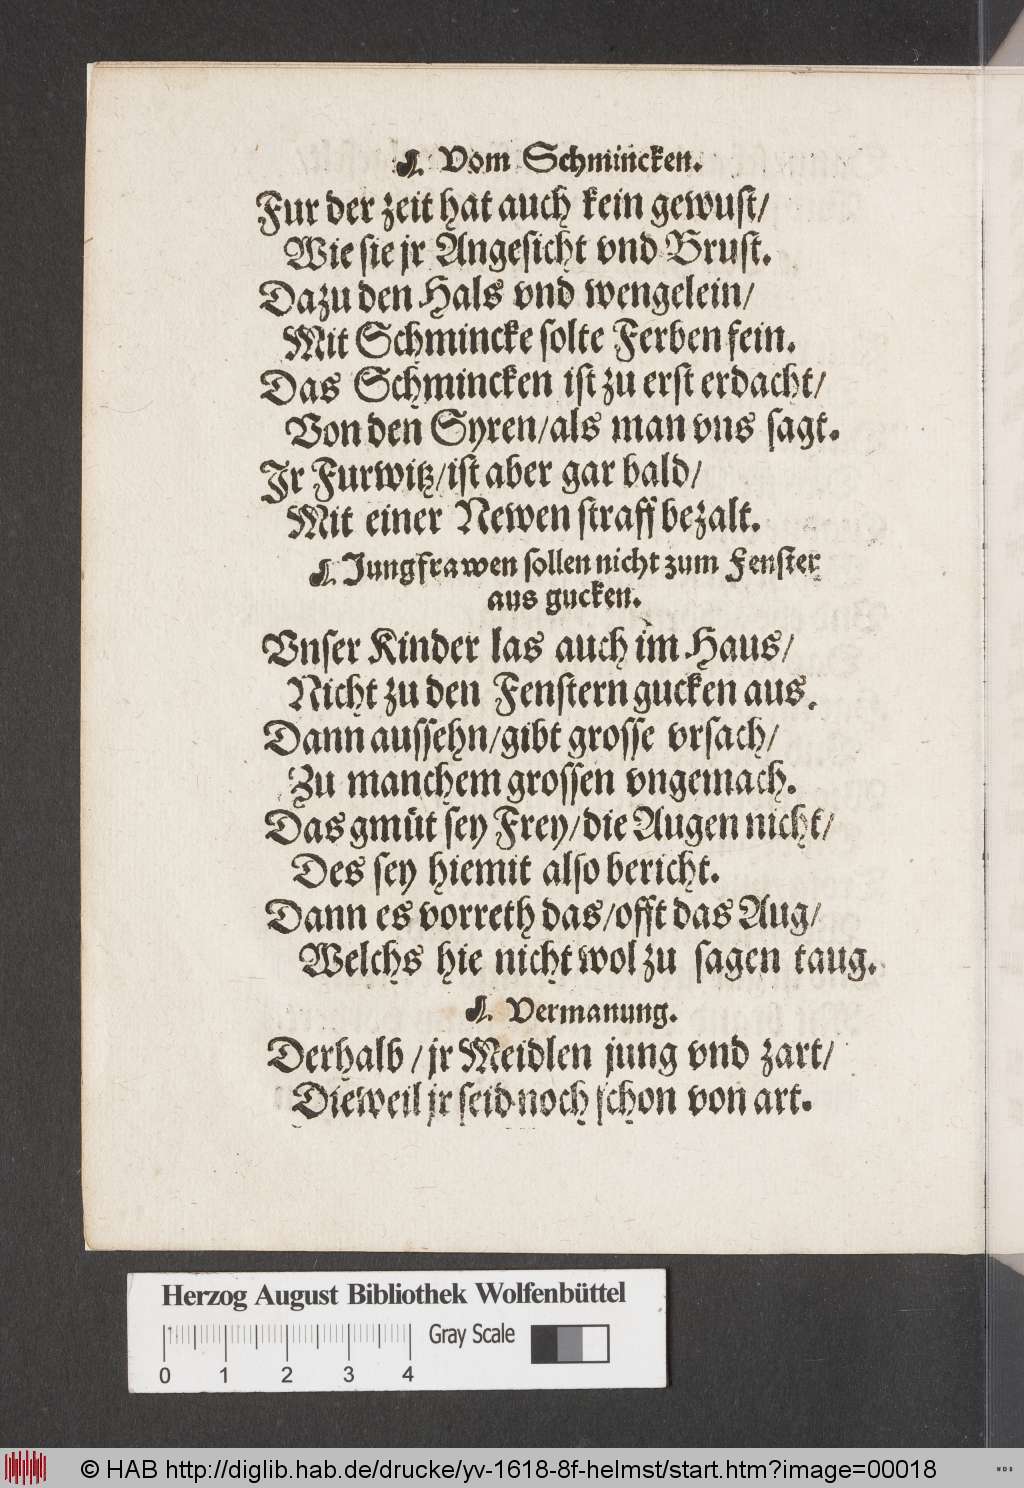 ☙. Vom Schmincken.
Fur der zeit hat auch kein gewust/
Wie sie jr Angesicht vnd Brust.
Dazu den Hals vnd wengelein/
Mit Schmincke solte Ferben fein.
Das Schmincken ist zu erst erdacht/
Von den Syren/als man vns sagt.
Jr Furwitz/ist aber gar bald/
Mit einer Newen straff bezalt.
☙. Jungfrawen sollen nicht zum Fenster
aus gucken.
Vnser Kinder las auch im Haus/
Nicht zu den Fenstern gucken aus.
Dann aussehn/gibt grosse vrsach/
Zu manchem grossen vngemach.
Das gmüt sey Frey/die Augen nicht/
Des sey hiemit also bericht.
Dann es vorreth das/offt das Aug/
Welchs hie nicht wol zu sagen taug.
☙. Vermanung.
Derhalb/jr Meidlen jung vnd zart/
Dieweil jr seid noch schon von art.
Herzog August Bibliothek Wolfenbüttel
Gray Scale
0 1 2 3 4
© HAB http://diglib.hab.de/drucke/yv-1618-8f-helmst/start.htm?image=00018